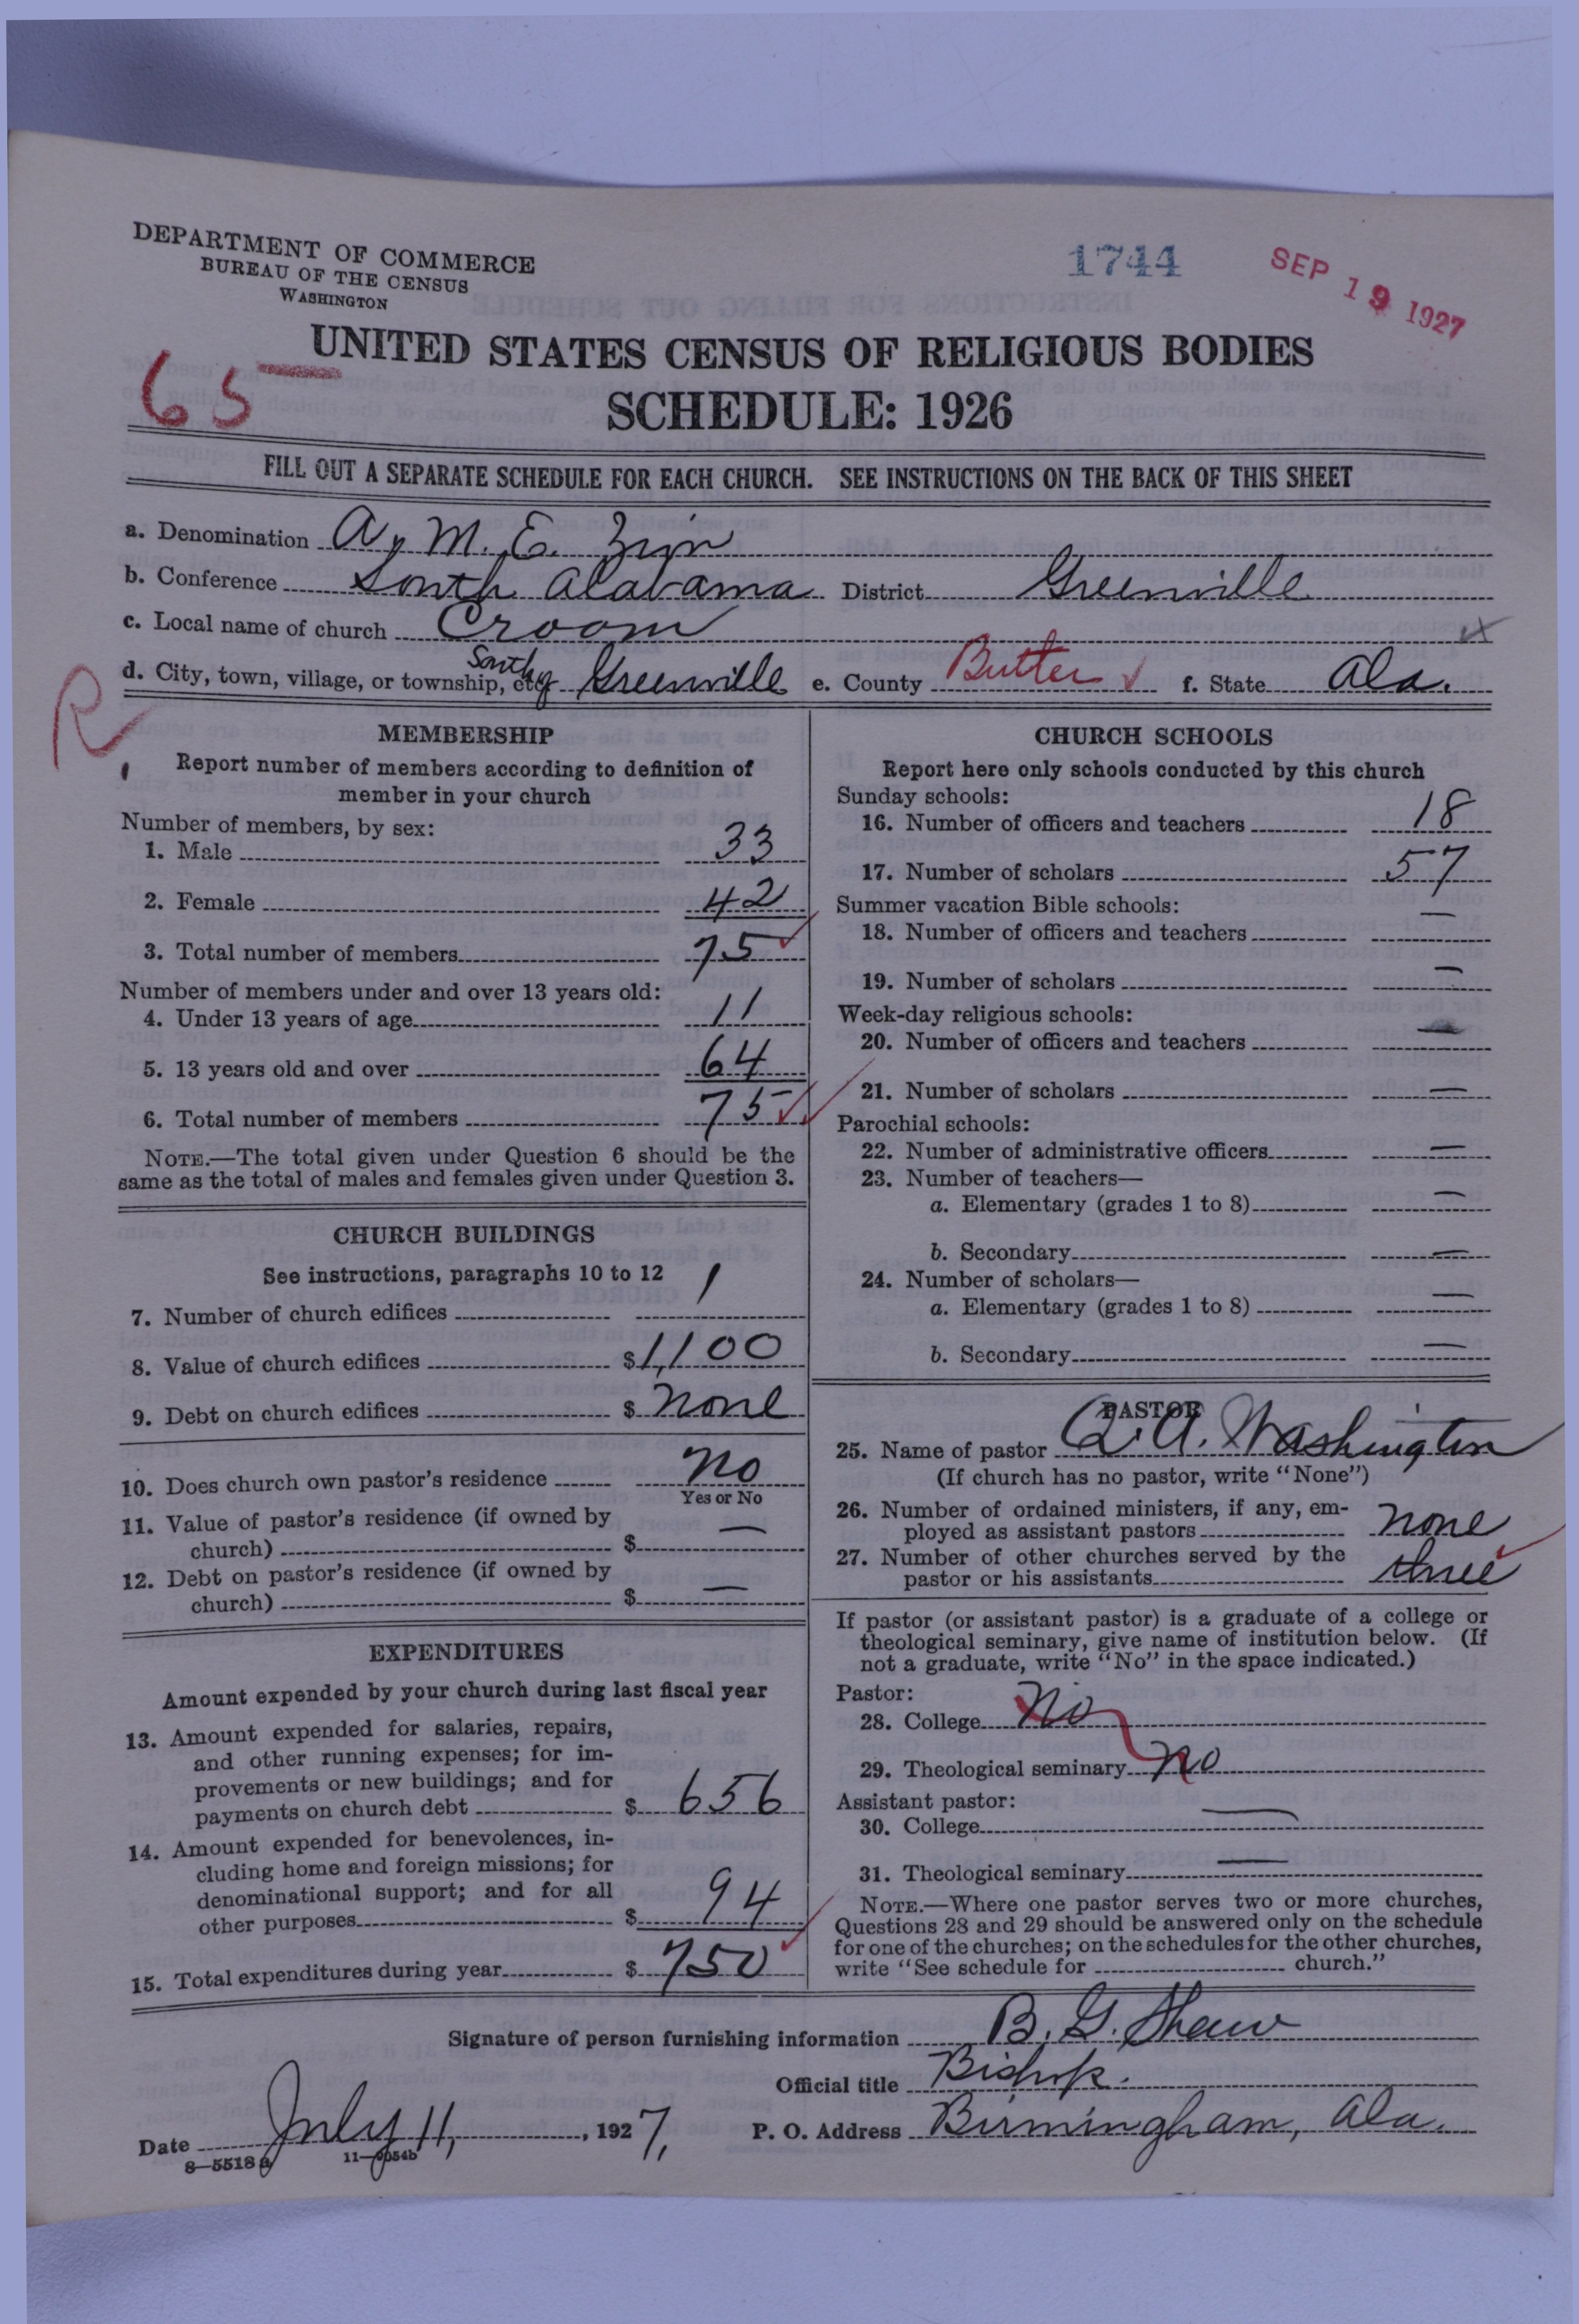 DEPARTMENT OF COMMERCE
BUREAU OF THE CENSUS
WASHINGTON
1744
SEP 19 1927
65
UNITED STATES CENSUS OF RELIGIOUS BODIES
SCHEDULE: 1926
FILL OUT A SEPARATE SCHEDULE FOR EACH CHURCH. SEE INSTRUCTIONS ON THE BACK OF THIS SHEET
a. Denomination A. M. E. Zion
b. Conference South Alabama District Greenville
c. Local name of church Croom
d. City, town, village, or township, etc. South of Greenville e. County Butler f. State Ala.
R
MEMBERSHIP
Report number of members according to definition of
member in your church
Number of members, by sex:
1. Male 33
2. Female 42
3. Total number of members 75
Number of members under and over 13 years old:
4. Under 13 years of age 11
5. 13 years old and over 64
6. Total number of members 75
NOTE.—The total given under Question 6 should be the
same as the total of males and females given under Question 3.
CHURCH BUILDINGS
See instructions, paragraphs 10 to 12
7. Number of church edifices 1
8. Value of church edifices $1,100
9. Debt on church edifices $ none
10. Does church own pastor's residence No
Yes or No
11. Value of pastor's residence (if owned by
church) $ —
12. Debt on pastor's residence (if owned by
church) $ —
EXPENDITURES
Amount expended by your church during last fiscal year
13. Amount expended for salaries, repairs,
and other running expenses; for im-
provements or new buildings; and for
payments on church debt $ 656
14. Amount expended for benevolences, in-
cluding home and foreign missions; for
denominational support; and for all
other purposes $ 94
15. Total expenditures during year $ 750
CHURCH SCHOOLS
Report here only schools conducted by this church
Sunday schools:
16. Number of officers and teachers 18
17. Number of scholars 57
Summer vacation Bible schools:
18. Number of officers and teachers —
19. Number of scholars —
Week-day religious schools:
20. Number of officers and teachers —
21. Number of scholars —
Parochial schools:
22. Number of administrative officers —
23. Number of teachers—
a. Elementary (grades 1 to 8) —
b. Secondary —
24. Number of scholars—
a. Elementary (grades 1 to 8) —
b. Secondary —
PASTOR
25. Name of pastor Q. A. Washington
(If church has no pastor, write "None")
26. Number of ordained ministers, if any, em-
ployed as assistant pastors none
27. Number of other churches served by the
pastor or his assistants three
If pastor (or assistant pastor) is a graduate of a college or
theological seminary, give name of institution below. (If
not a graduate, write "No" in the space indicated.)
Pastor:
28. College No
29. Theological seminary No
Assistant pastor:
30. College —
31. Theological seminary —
NOTE.—Where one pastor serves two or more churches,
Questions 28 and 29 should be answered only on the schedule
for one of the churches; on the schedules for the other churches,
write "See schedule for church."
Signature of person furnishing information B. G. Shaw
Official title Bishop.
Date July 11, 1927, P. O. Address Birmingham, Ala.
8—5518a 11—9054b